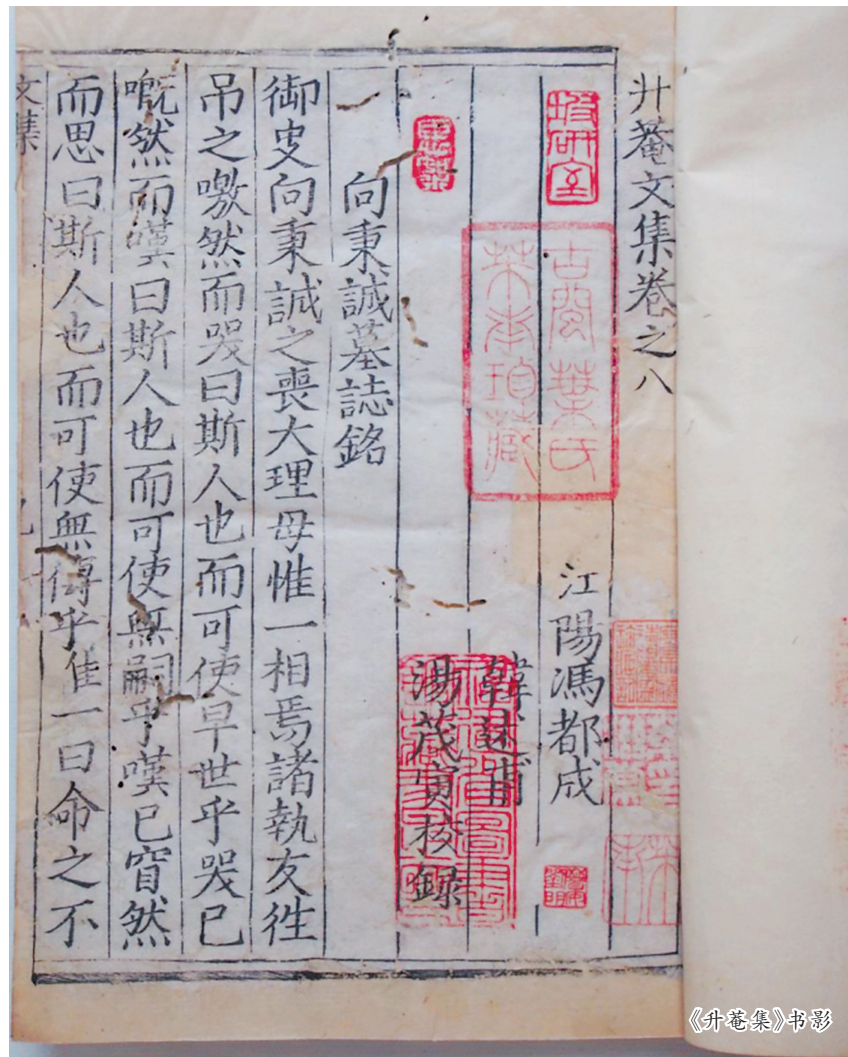 升菴文集卷之八
江陽馮都成
韓述甫
湯茂實校録
向秉誠墓誌銘
御史向秉誠之喪大理毋惟一相焉諸執友徃
吊之噭然而哭曰斯人也而可使早世乎哭已
嘅然而嘆曰斯人也而可使無嗣乎嘆已窅然
而思曰斯人也而可使無傳乎惟一曰命之不
文集
研室
古閩葉氏
葉本珍藏
《升菴集》书影